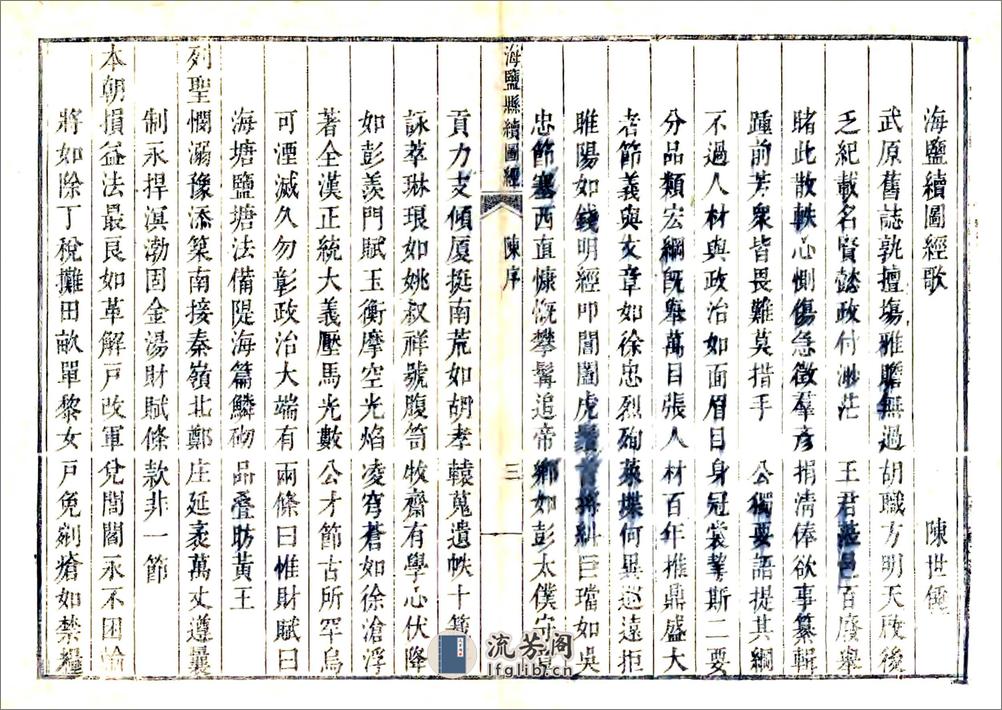 海鹽續圖經歌 陳世倕
武原舊誌孰擅場雅贍無過胡職方明天啟後
乏紀載名賢懿政付渺茫 王君蒞邑百廢舉
睹此散軼心惻傷急徵羣彥捐清俸欲事纂輯
踵前芳衆皆畏難莫措手 公獨要語提其綱
不過人材與政治如面眉目身冠裳挈斯二要
分品類宏綱旣舉萬目張人材百年推鼎盛大
者節義與文章如徐忠烈殉萊堞何異巡遠拒
睢陽如錢明經叩閶闔虎鬚 糾巨璫如吳
忠節塞西直慷慨攀髯追帝鄉如彭太僕守
海鹽縣續圖經 陳序 三
貢力支傾厦挺南荒如胡孝轅蒐遺帙十籤
詠萃琳琅如姚叔祥號腹笥牧齋有學心伏降
如彭羨門賦玉衡摩空光焰凌穹蒼如徐滄浮
著全漢正統大義壓馬光數公才節古所罕烏
可湮滅久勿彰政治大端有兩條曰惟財賦曰
海塘鹽塘法備隄海篇鱗砌品疊昉黃王
列聖憫溺豫添築南接秦嶺北鄭庄延袤萬丈遵曩
制永捍溟渤固金湯財賦條款非一節
本朝損益法最良如革解戶改軍兌閭閻永不困愉
將如除丁稅攤田畝單黎女戶免剜瘡如禁糧
流芳阁
lfglib.cn